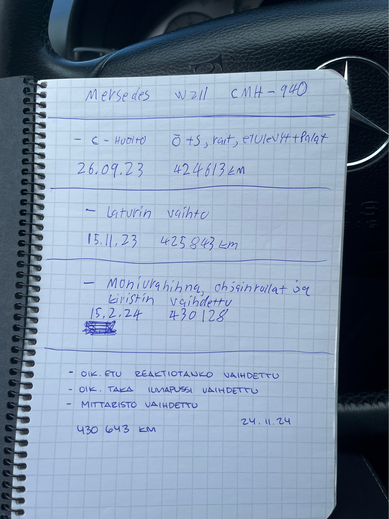 Mersedes W211 CMH-940
- C-Huolto Ö+S, rait, etulevyt+Palat
26.09.23 424613 KM
- Laturin vaihto
15.11.23 425843 KM
- Moniurahihna, ohjainrullat ja
kiristin vaihdettu
15.2.24 430128
- OIK. ETU REAKTIOTANKO VAIHDETTU
- OIK. TAKA ILMAPUSSI VAIHDETTU
- MITTARISTO VAIHDETTU
24.11.24
430 643 KM